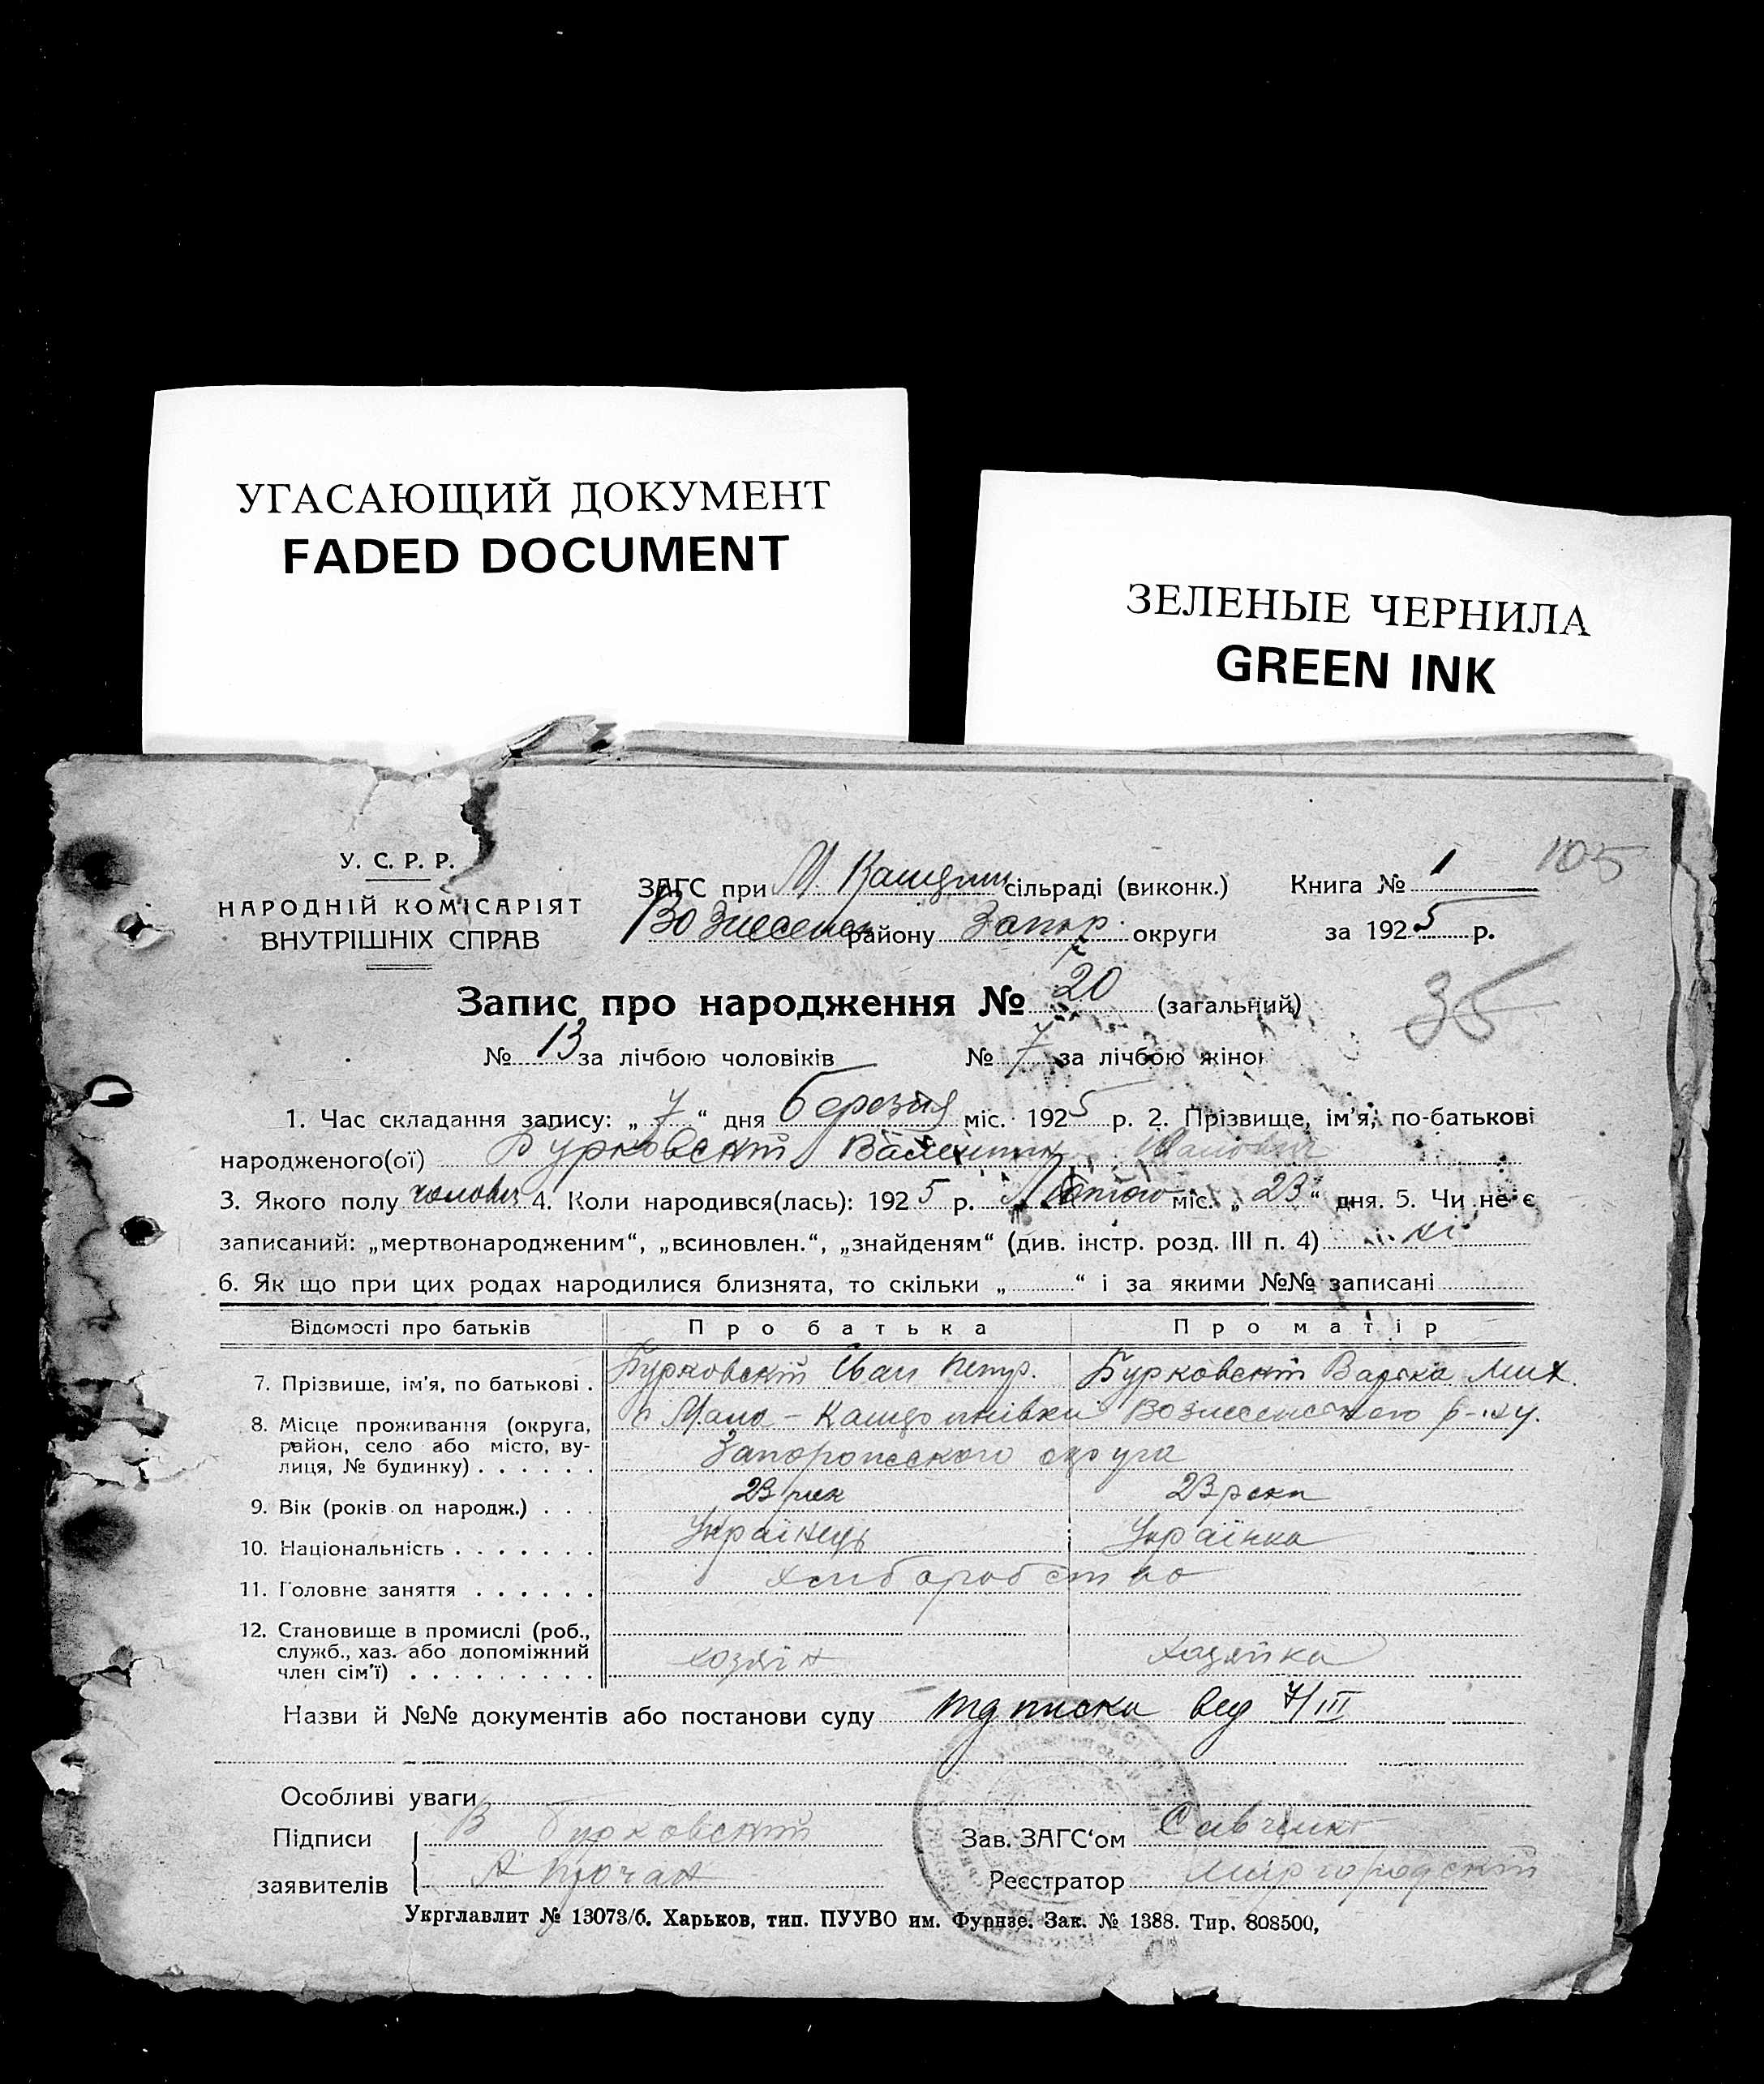 УГАСАЮЩИЙ ДОКУМЕНТ
FADED DOCUMENT
ЗЕЛЕНЫЕ ЧЕРНИЛА
GREEN INK
У. С. Р. Р.
НАРОДНІЙ КОМІСАРІЯТ
ВНУТРІШНІХ СПРАВ
ЗАГС при М. сільраді (виконк.)
Книга № 1
105
Вознесенск району Запор. округи
за 1925 р.
Запис про народження № 20 (загальний)
35
№ 13 за лічбою чоловіків № 7 за лічбою жінок
1. Час складання запису: „ 7 “ дня березня міс. 1925 р. 2. Прізвище, ім'я, по-батькові
народженого(ої) Бурковскій Валентин Іванович
3. Якого полу чоловіч 4. Коли народився(лась): 1925 р. Лютого міс. „ 23 “ дня. 5. Чи не є
записаний: „мертвонародженим“, „всиновлен.“, „знайденям“ (див. інстр. розд. III п. 4) ні
6. Як що при цих родах народилися близнята, то скільки „ “ і за якими №№ записані
Відомості про батьків Про батька Про матір
7. Прізвище, ім'я, по батькові . Бурковскій Іван Петр. Бурковскій Варька Мих.
8. Місце проживання (округа, с Мало-Вознесенского р-ну.
район, село або місто, ву-
лиця, № будинку) . . . . . . Запорожского округа
9. Вік (років од народж.) . . . 23 рік 23 роки
10. Національність . . . . . . . Українець Українка
11. Головне заняття . . . . . . хлиборобство
12. Становище в промислі (роб.,
служб., хаз. або допоміжний
член сім'ї) . . . . . . . . . хозяїн хазяйка
Назви й №№ документів або постанови суду підписка від 7/III
Особливі уваги
Підписи В Бурковскій
Зав. ЗАГС'ом Савченко
заявителів А
Реєстратор Миргородскій
Укрглавлит № 13073/б. Харьков, тип. ПУУВО им. Фрунзе. Зак. № 1388. Тир. 808500,